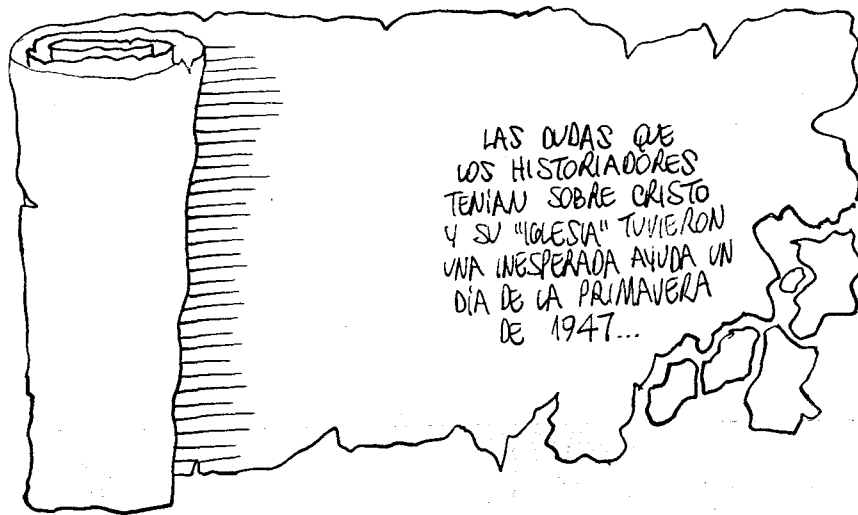 LAS DUDAS QUE
LOS HISTORIADORES
TENÍAN SOBRE CRISTO
Y SU "IGLESIA" TUVIERON
UNA INESPERADA AYUDA UN
DÍA DE LA PRIMAVERA
DE 1947...